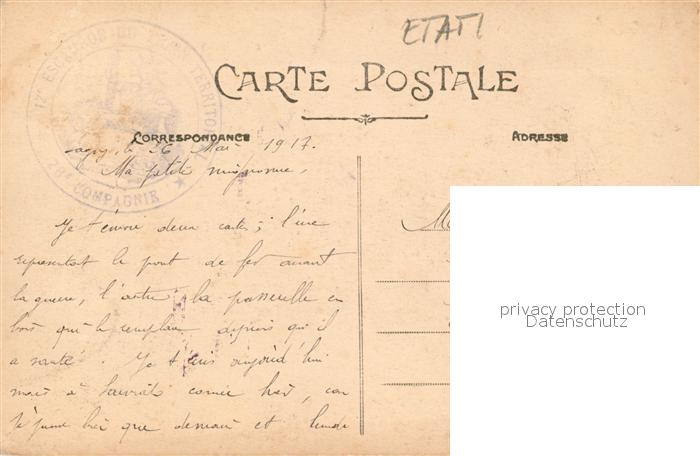 ETATI
CARTE POSTALE
CORRESPONDANCE
ADRESSE
26 Mai 1917.
Ma petite mignonne,
Je t'envoie deux cartes ; l'une
représentant le pont de fer avant
la guerre, l'autre la passerelle en
bois qui le remplace depuis qu'il
a sauté. Je t'écris aujourd'hui
mais à comme hier, car
je pense bien que demain et lundi
COMPAGNIE
M
privacy protection
Datenschutz